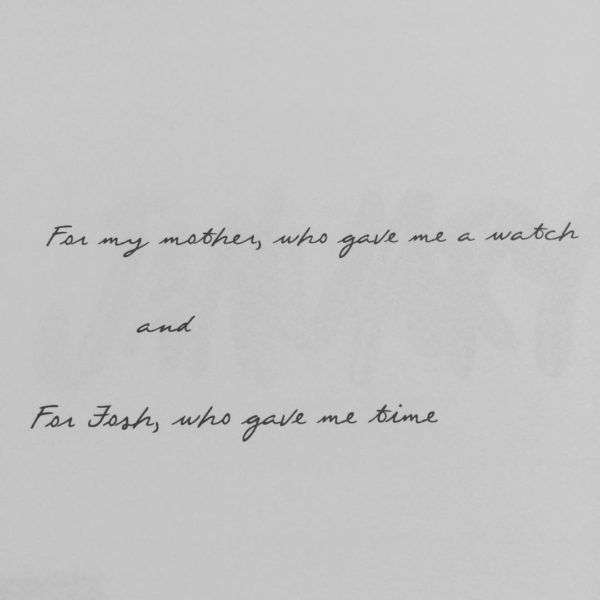 For my mother, who gave me a watch
and
For Josh, who gave me time